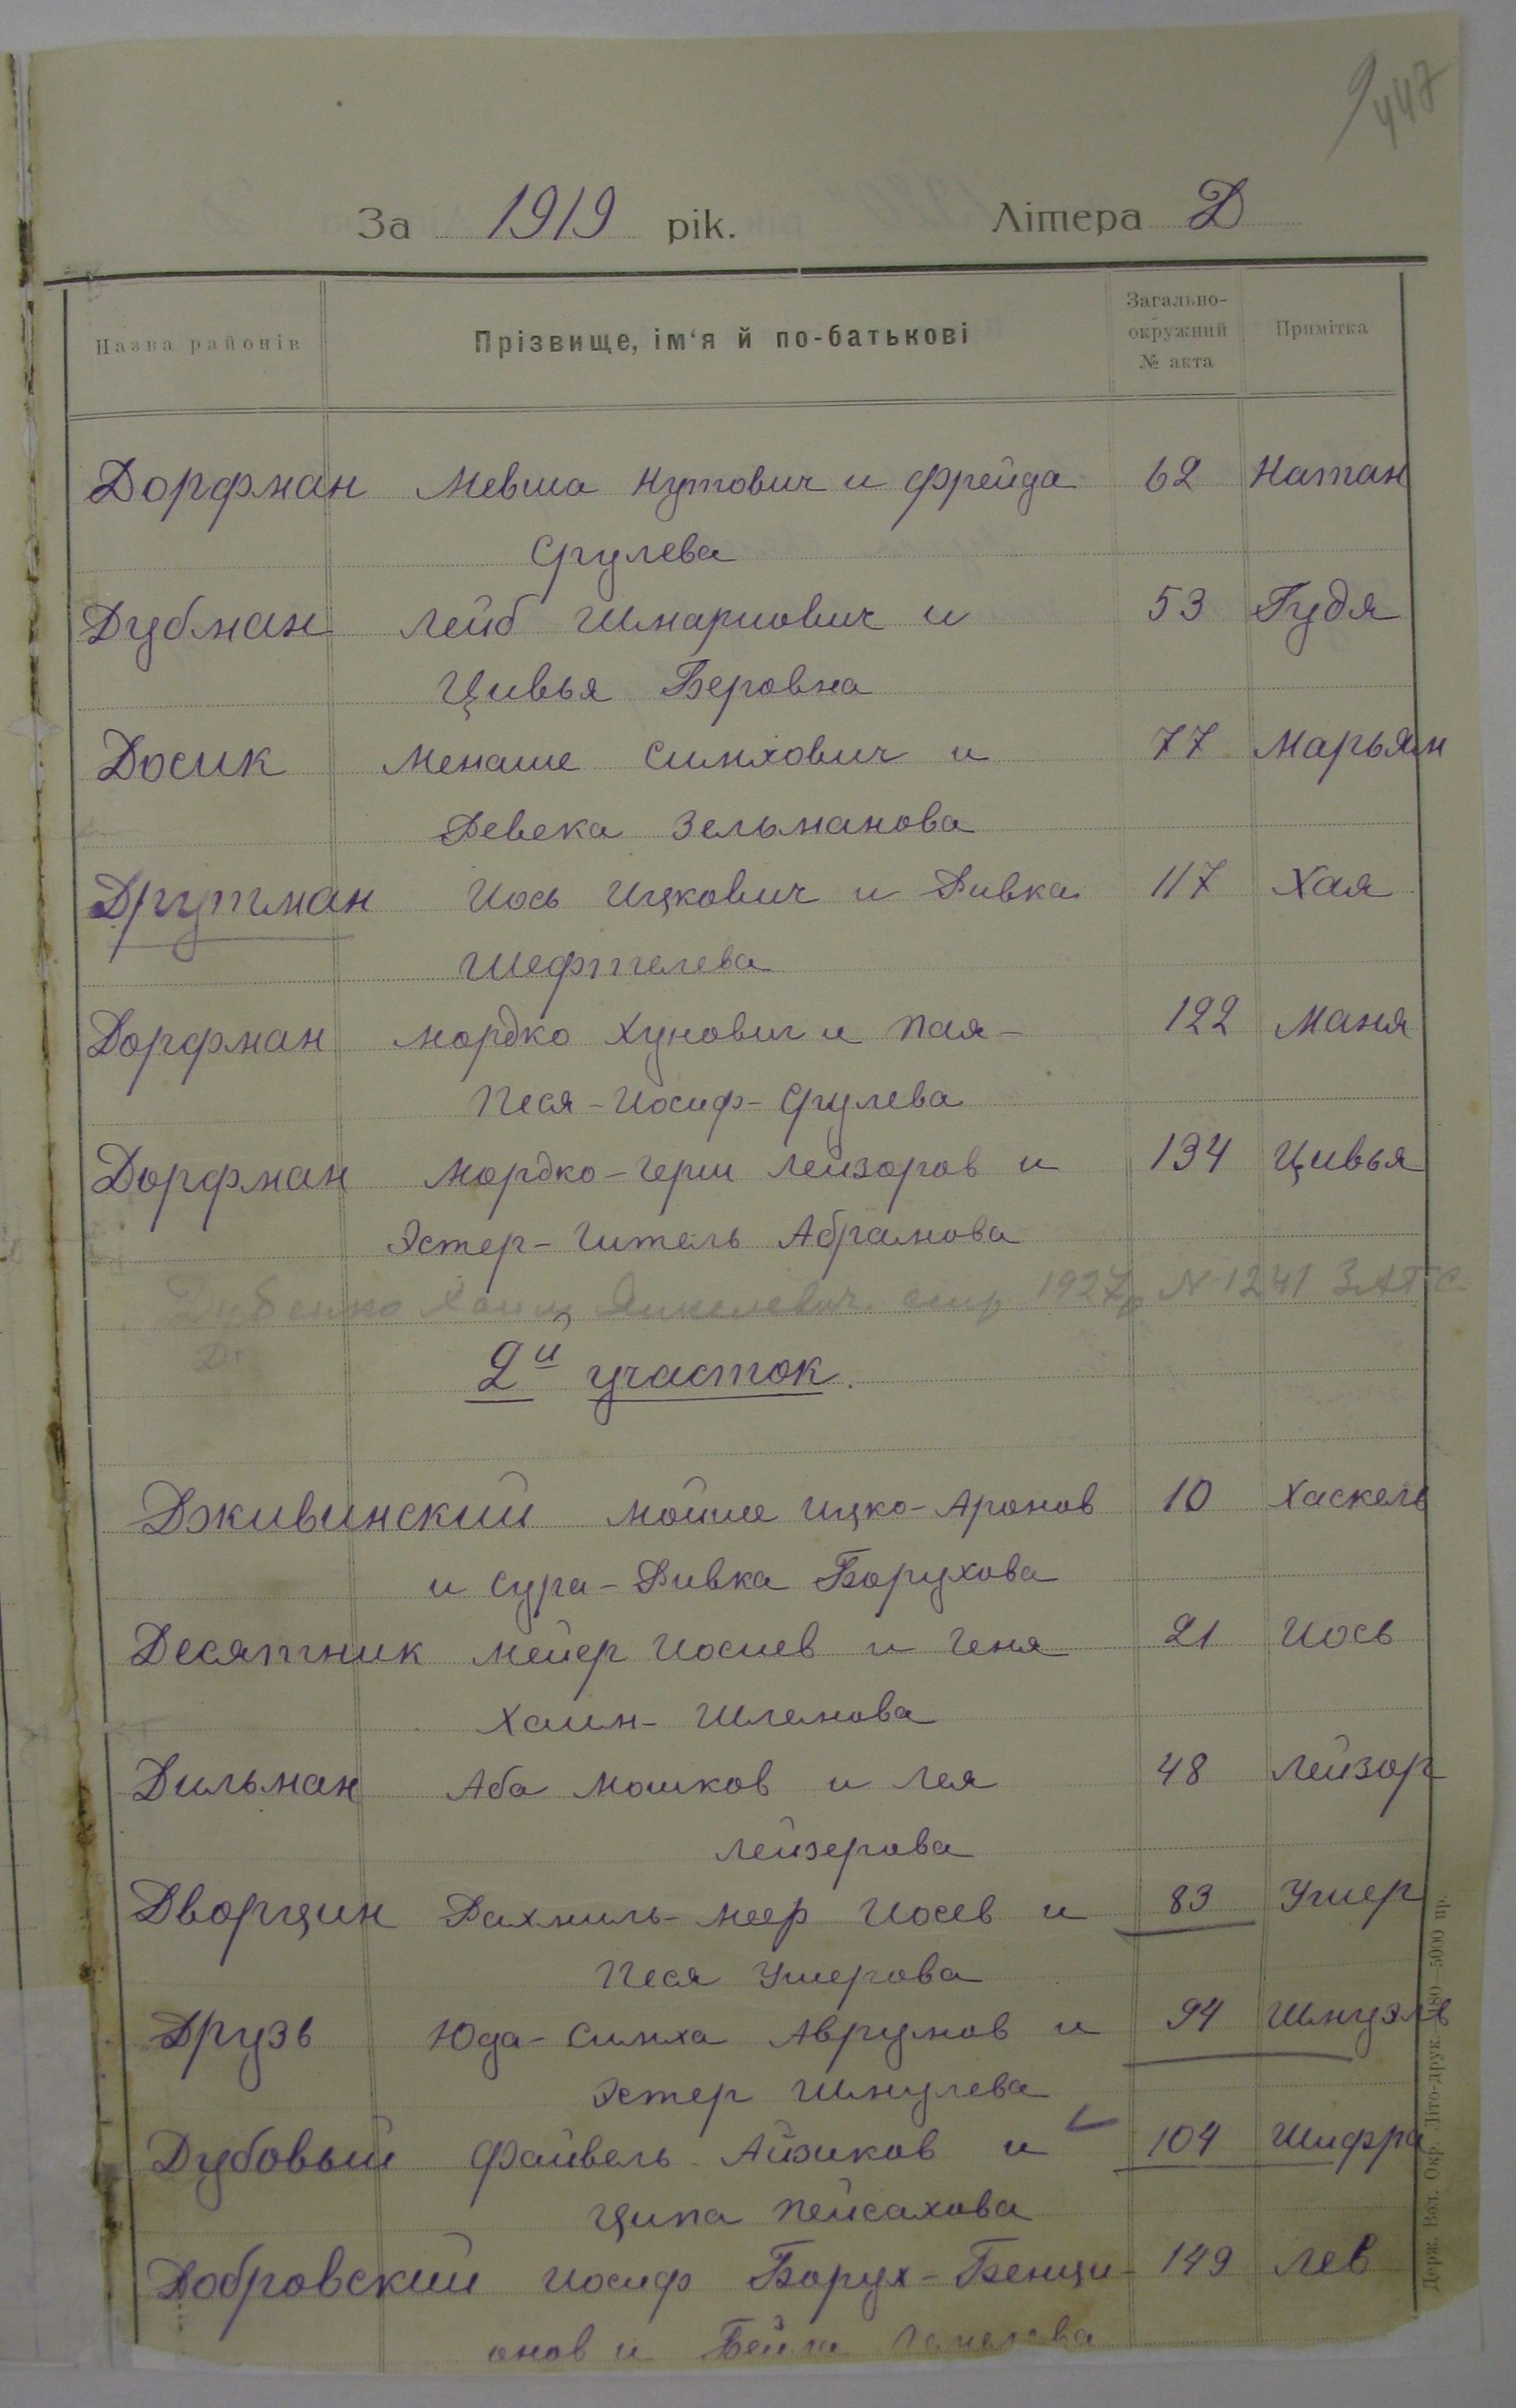 9/447
За 1919 рік. Літера Д
Назва районів Прізвище, ім'я й по-батькові Загально-окружний № акта Примітка
Дорфман Мевша Нутович и Фрейда 62 Натан
Срулева
Дубман Лейб Шмариович и 53 Гудя
Цивья Беровна
Досик Менаше Симхович и 77 Марьям
Ревека Зельманова
Друтман Иось Ицкович и Ривка 117 Хая
Шефтелева
Дорфман Мордко Хунович и Пая- 122 Маня
Песя-Иосиф-Срулева
Дорфман Мордко-Герш Лейзоров и 134 Цивья
Эстер-Гитель Абрамова
Дубенко Хаим Янкелевич. 1927 N 1241 ЗАГС
2й участок.
Дживинский Мойше Ицко-Аронов 10 Хаскель
и Сура-Ривка Борухова
Десятник Мейер Иосиев и Геня 21 Иось
Хаим-Шлемова
Дильман Аба Мошков и Лея 48 Лейзор
Лейзерова
Дворцин Рахмиль-Меер Иосев и 83 Ушер
Песя Ушерова
Друзь Юда-Симха Аврумов и 94 Шмуэль
Эстер Шмулева
Дубовый Файвель Айзиков и 104 Шифра
Ципа Пейсахова
Добровский Иосиф Борух-Бенци- 149 Лев
онов и Бейла
Держ. Вол. Окр. Літо-друк. 180—5000 пр.